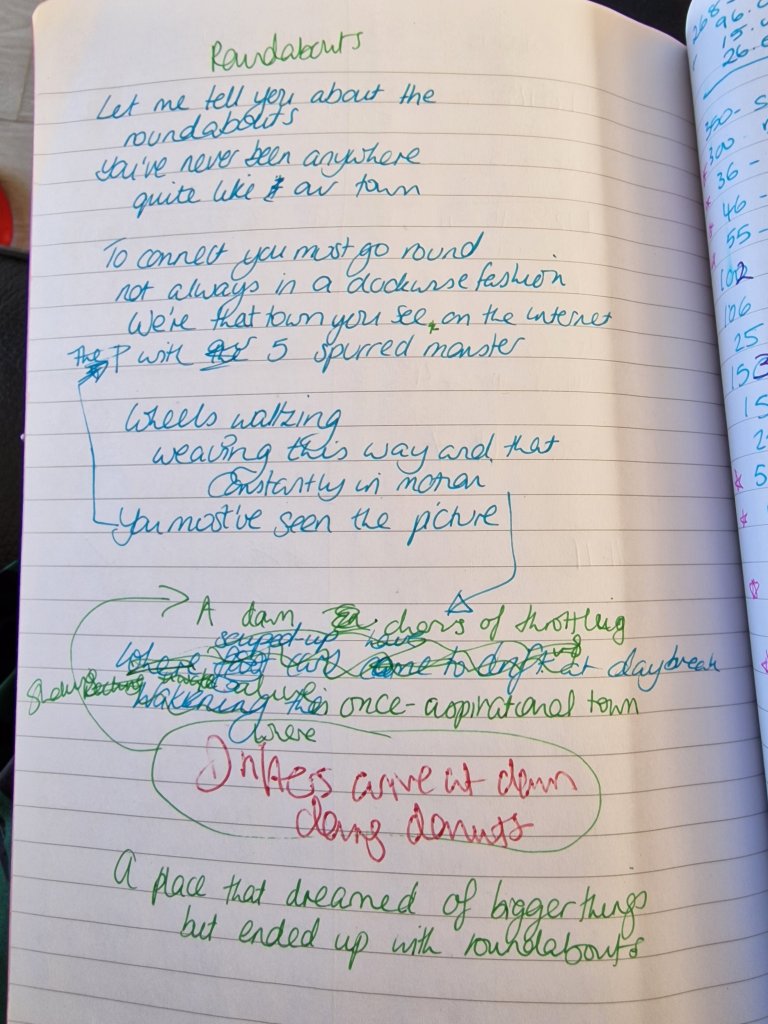 Roundabouts
Let me tell you about the
roundabouts
You've never been anywhere
quite like our town
To connect you must go round
not always in a clockwise fashion
We're that town you see, on the internet
The P with 5 spurred monster
Wheels waltzing
weaving this way and that
Constantly in motion
You most've seen the picture
A dawn chorus of throttling
souped-up
at daybreak
this once-aspirational town
where
Drifters arrive at dawn
doing donuts
A place that dreamed of bigger things
but ended up with roundabouts
268
96.
15.
26.
300
36 -
46 -
55 -
102
106
25